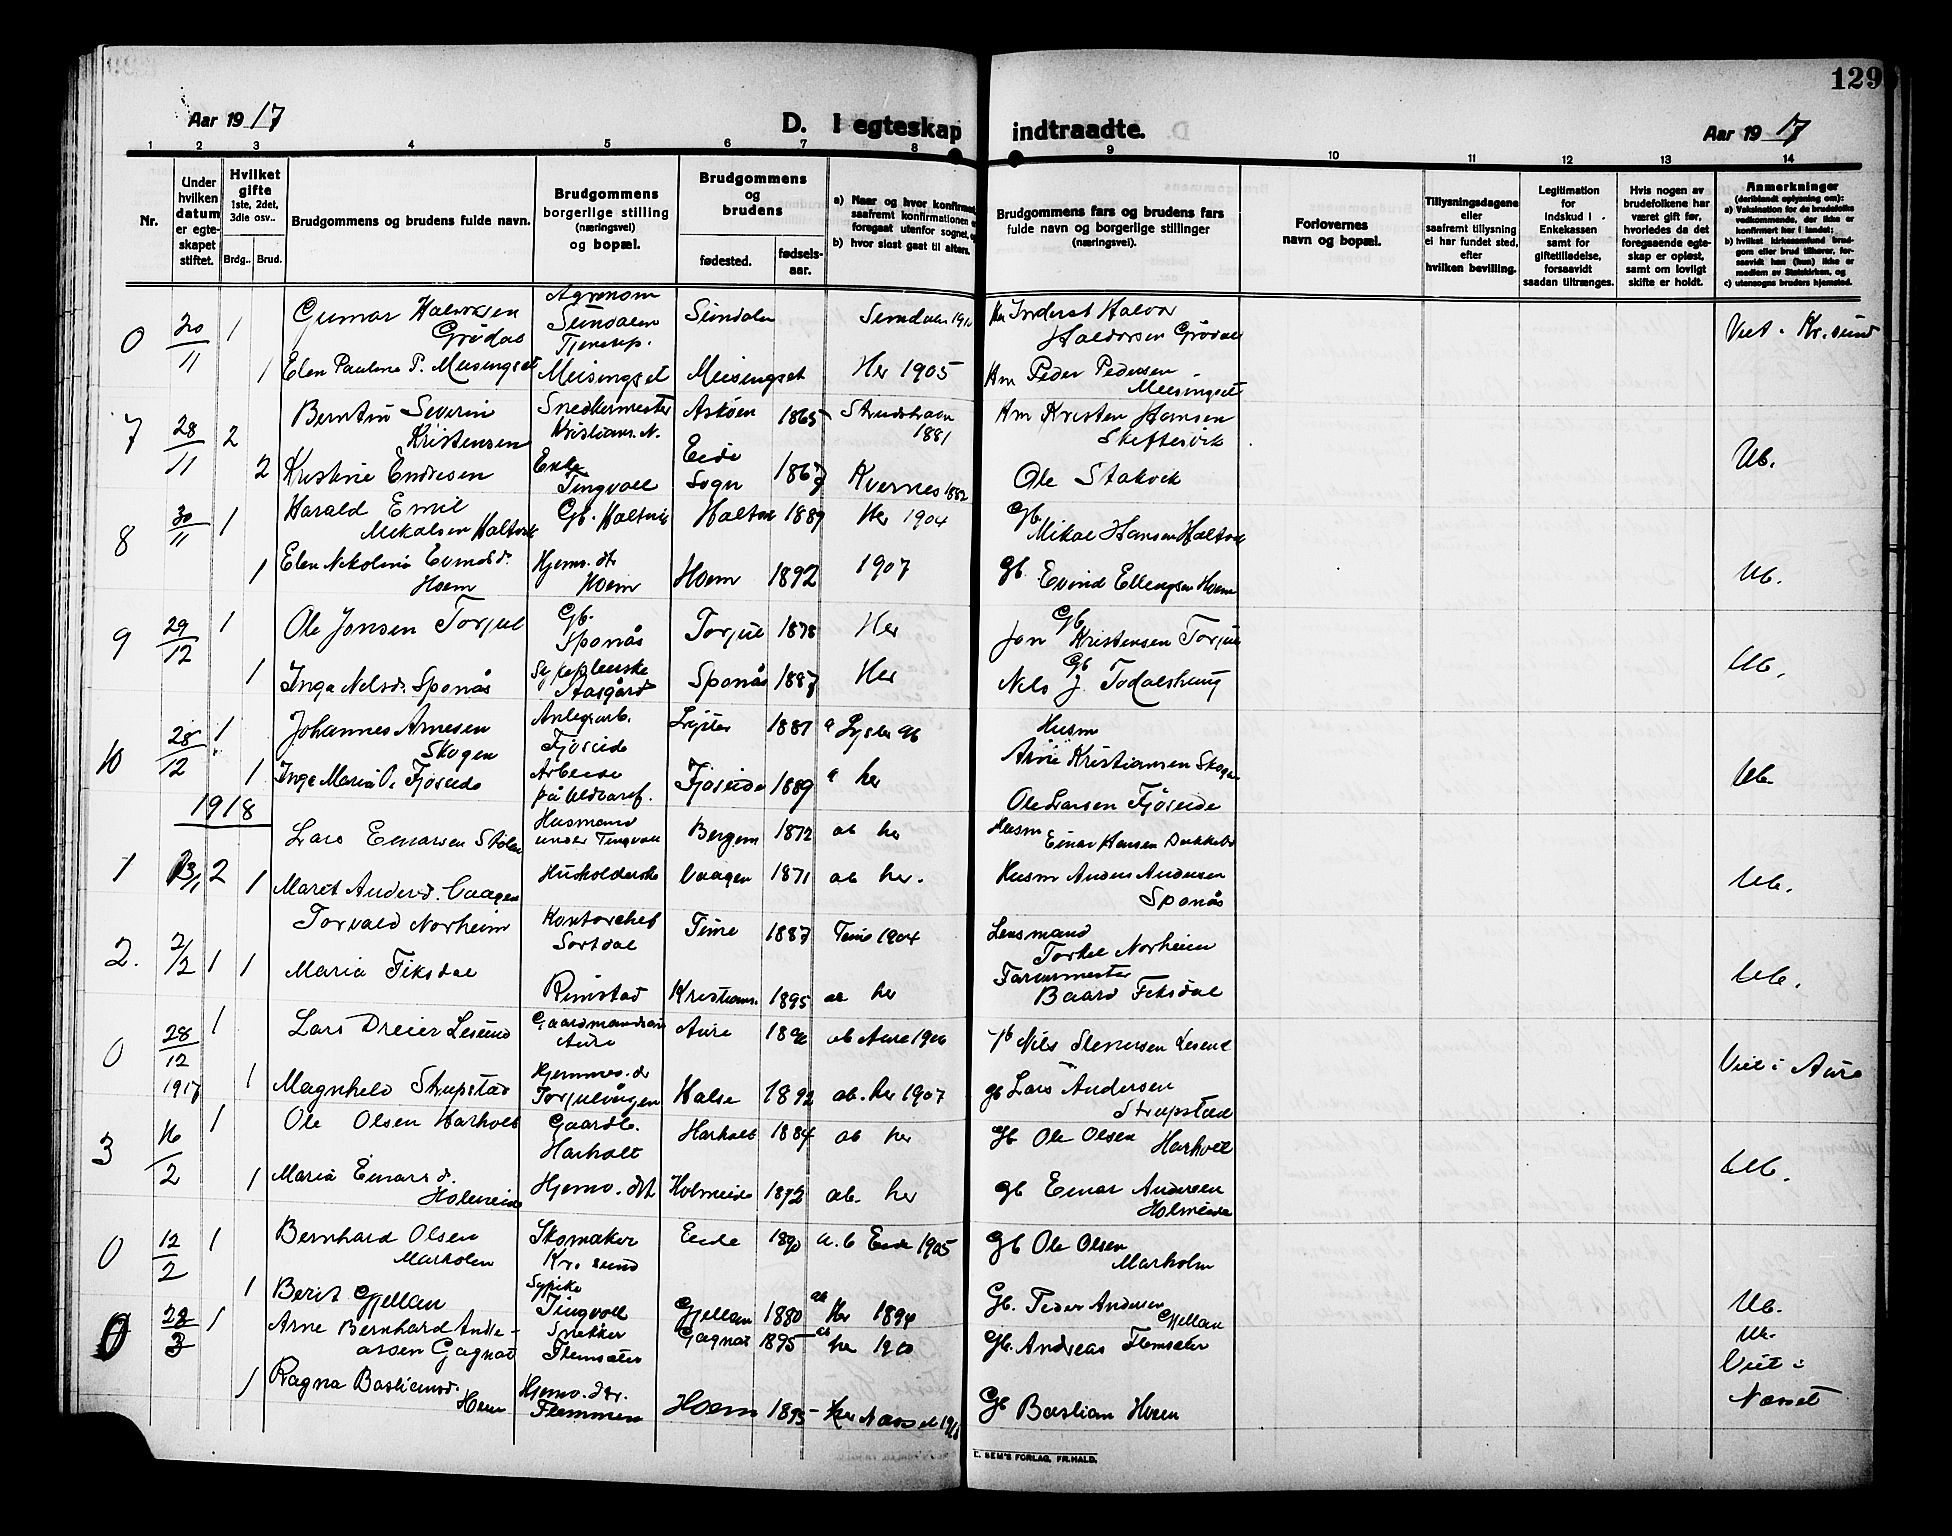 129
Aar 1917
D. I egteskap indtraadte.
Aar 1917
1 2 3 4 5 6 7 8 9 10 11 12 13 14
Nr.
Under hvilken datum er egteskapet stiftet.
Hvilket gifte 1ste, 2det, 3die osv..
Brdg.. Brud.
Brudgommens og brudens fulde navn.
Brudgommens borgerlige stilling (næringsvei) og bopæl.
Brudgommens og brudens
fødested.
fødselsaar.
a) Naar og hvor konfirmert, saafremt konfirmationen er foregaat utenfor sognet,
b) hvor sidst gaat til alters.
Brudgommens fars og brudens fars fulde navn og borgerlige stillinger (næringsvei).
Forlovernes navn og bopæl.
Tillysningsdagene eller saafremt tillysning ei har fundet sted, efter hvilken bevilling.
Legitimation for indskud i Enkekassen samt for giftetilladelse, forsaavidt saadan tiltrænges.
Hvis nogen av brudefolkene har været gift før, hvorledes da det foregaaende egteskap er opløst, samt om lovligt skifte er holdt.
Anmerkninger (deriblandt oplysning om):
a) Vaksination for de brudefolks vedkommende, der ikke er konfirmert her i landet;
b) hvilket kirkesamfund brudgom eller brud tilhører, forsaavidt han (hun) ikke er medlem av Statskirken, og
c) utensogns bruders hjemsted.
0 20/11 1 Gunnar Halvorsen Grødas Agronom Sundalen Sundalen Sundalen Halvor Haldorsen Viet i Kr. sund
1 Elen Pauline P. Meisingset Meisingset Meisingset Her 1905 Peder Pedersen Meisingset
7 28/11 2 Severin Kristensen Snedkermester Kristians. N. Askøen 1865 1881 Kristen Hansen
2 Kristine Endresen Enke Tingvoll Eide Sogn 1867 Kvernes 1882 Ole Stakvik Ub.
8 30/11 1 Harald Emil Mikalsen Haltvik Gb. Haltvik Haltvik 1889 Her 1904 Gb Mikal Hansen Haltvik
1 Elen Nikoline Hoem Hjemv. dt Hoem Hoem 1892 1907 Gb. Evind Ellingsen Hoem Ub.
9 29/12 1 Ole Jonsen Torjul Gb. Sponås Torjul 1878 Her Gb Jon Kristensen Torjul
1 Inga Nelsd. Sponås Sykepleierske Aasgård Sponås 1887 Her Gb Nils J. Todalshaug Ub.
10 28/12 1 Johannes Arnesen Skogen Anlegsarb. Fjøseide Lyster 1887 a Lyster ab Husm Arne Kristiansen Skogen
1 Inga Maria O. Fjøseide Arbeide på Uldvaref. Fjøseide 1889 a her Ole Larsen Fjøseide Ub.
1918
1 13/1 2 Lars Einarsen Husmand under Tingvoll Bergem 1872 ab her Husm Einar Hansen
1 Maret Andersd. Vaagen Husholderske Vaagen 1871 ab her. Husm Anders Andersen Sponås Ub.
2. 2/2 1 Torvald Norheim Kontorchef Time 1887 Time 1904 Lensmand Torkel Norheim
1 Maria Fiksdal Rimstad Kristians. 1895 ab her Baard Fiksdal Ub.
0 28/12 1917 1 Lars Dreier Lesund Gaardmandssøn Aure Aure ab Aure 1906 Nils Lesund
1 Magnhild Strupstad Hjemmev. dr Torjulvågen Halse 1892 ab. her 1907 gb Lars Andersen Strupstad Viet i Aure
3 16/2 1 Ole Olsen Harholt Gaardb. Harholt Harholt 1884 ab her Gb Ole Olsen Harholt
1 Maria Einarsd. Holmeide Hjemv. dt Holmeide 1892 ab. her gb Einar Andersen Holmeide Ub.
0 12/2 1 Bernhard Olsen Marholm Skomaker Kr. sund Eide 1890 a.b Eide 1905 gb Ole Olsen Marholm
1 Berit Gjellan Sypike Tingvoll Gjellan 1880 ab her 1894 Gb. Peder Andersen Gjellan Ub.
0 28/3 1 Arne Bernhard Andreassen Gagnat Snekker Flemsæter Gagnat 1895 ab her 1910 Gb. Andreas Flemsæter Ub.
1 Ragna Bastiansd. Hoem Hjemv. dtr. Flemmen Hoem 1895 Gb Bastian Hoem Viet i Nesset
E. SEM'S FORLAG, FR.HALD.